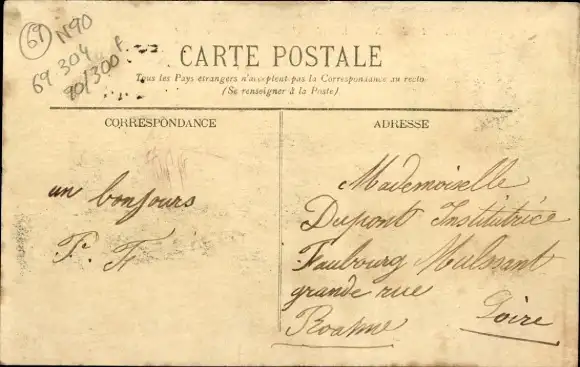 69
N90
69 304
90/300 F
CARTE POSTALE
Tous les Pays étrangers n'acceptent pas la Correspondance au recto
(Se renseigner à la Poste)
CORRESPONDANCE
un bonjours
F. F
ADRESSE
Mademoiselle
Dupont Institutrice
Faubourg Mulsant
grande rue
Roanne
Loire